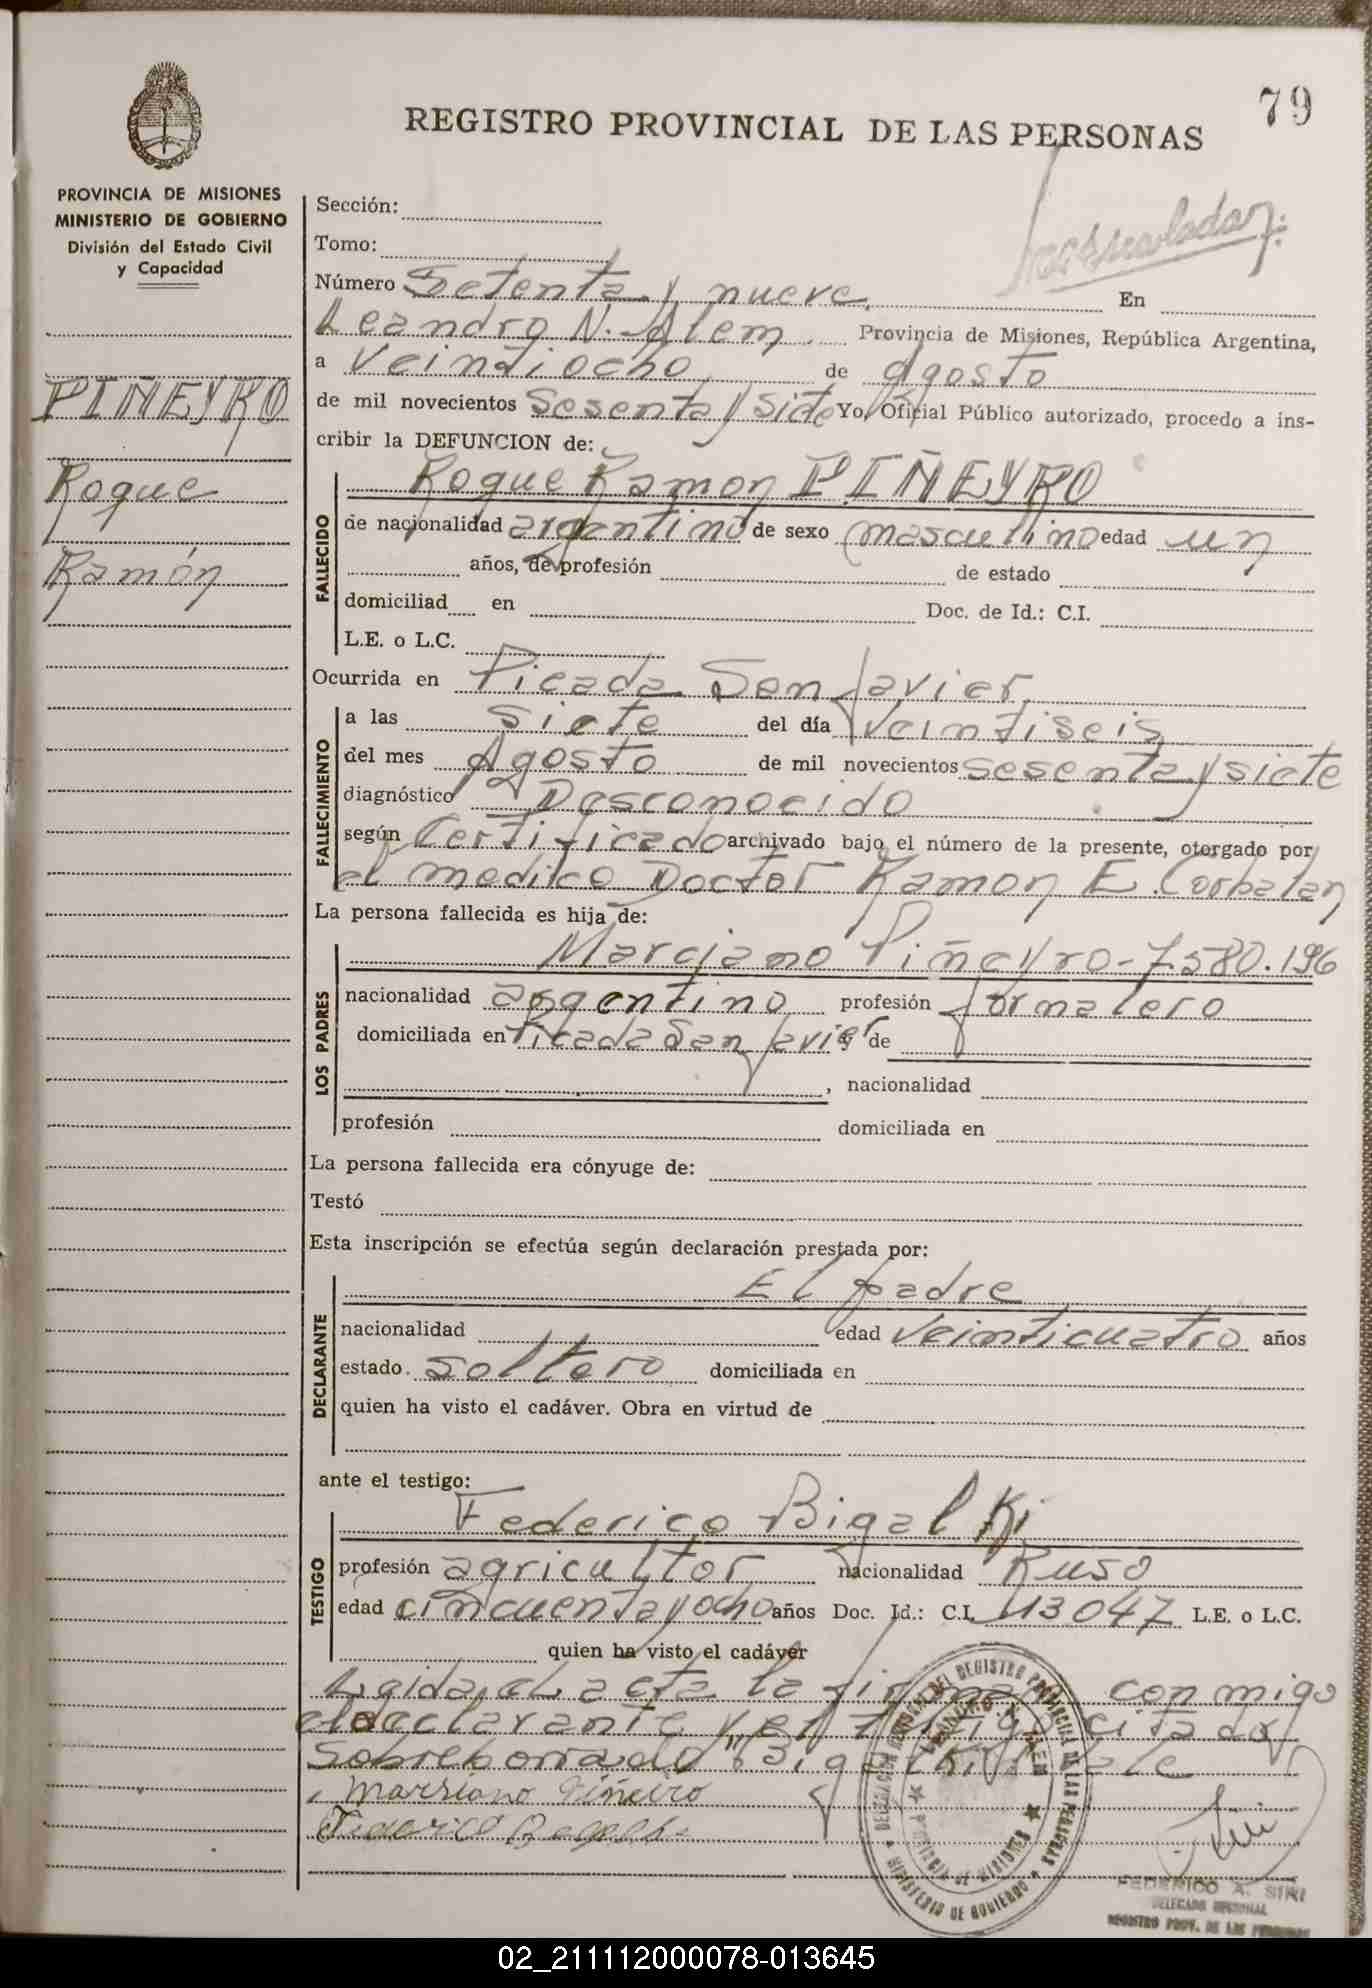 79
REGISTRO PROVINCIAL DE LAS PERSONAS
PROVINCIA DE MISIONES
MINISTERIO DE GOBIERNO
División del Estado Civil
y Capacidad
PIÑEYRO
Roque
Ramón
Sección:
Tomo:
Número Setenta y nueve, En
Leandro N. Alem Provincia de Misiones, República Argentina,
a Veintiocho de Agosto
de mil novecientos Sesenta y siete Yo, Oficial Público autorizado, procedo a ins-
cribir la DEFUNCION de:
Roque Ramon PIÑEYRO
FALLECIDO
de nacionalidad argentino de sexo masculino edad un
años, de profesión de estado
domiciliad en Doc. de Id.: C.I.
L.E. o L.C.
Ocurrida en Picada San Javier
FALLECIMIENTO
a las siete del día Veintiseis
del mes Agosto de mil novecientos sesenta y siete
diagnóstico Desconocido
según Certificado archivado bajo el número de la presente, otorgado por
el medico Doctor Ramon E. Corbalan
La persona fallecida es hija de:
LOS PADRES
Marciano Piñeyro-7.580.196
nacionalidad argentino profesión jornalero
domiciliada en Picada San Javier de
, nacionalidad
profesión domiciliada en
La persona fallecida era cónyuge de:
Testó
Esta inscripción se efectúa según declaración prestada por:
DECLARANTE
El padre
nacionalidad edad veinticuatro años
estado soltero domiciliada en
quien ha visto el cadáver. Obra en virtud de
ante el testigo:
TESTIGO
Federico Bigalki
profesión agricultor nacionalidad Ruso
edad cincuenta y ocho años Doc. Id.: C.I. 113047 L.E. o L.C.
quien ha visto el cadáver
Leida el acta la firman conmigo
el declarante y el testigo citado
Sobreborrado "Bigalki" Vale
Marsiano Piñeiro
Federico
DELEGACION REGIONAL DEL REGISTRO PROVINCIAL DE LAS PERSONAS
LEANDRO N. ALEM
PROVINCIA DE MISIONES
MINISTERIO DE GOBIERNO
FEDERICO A. SIRI
DELEGADO REGIONAL
REGISTRO PROV. DE LAS PERSONAS
02_211112000078-013645